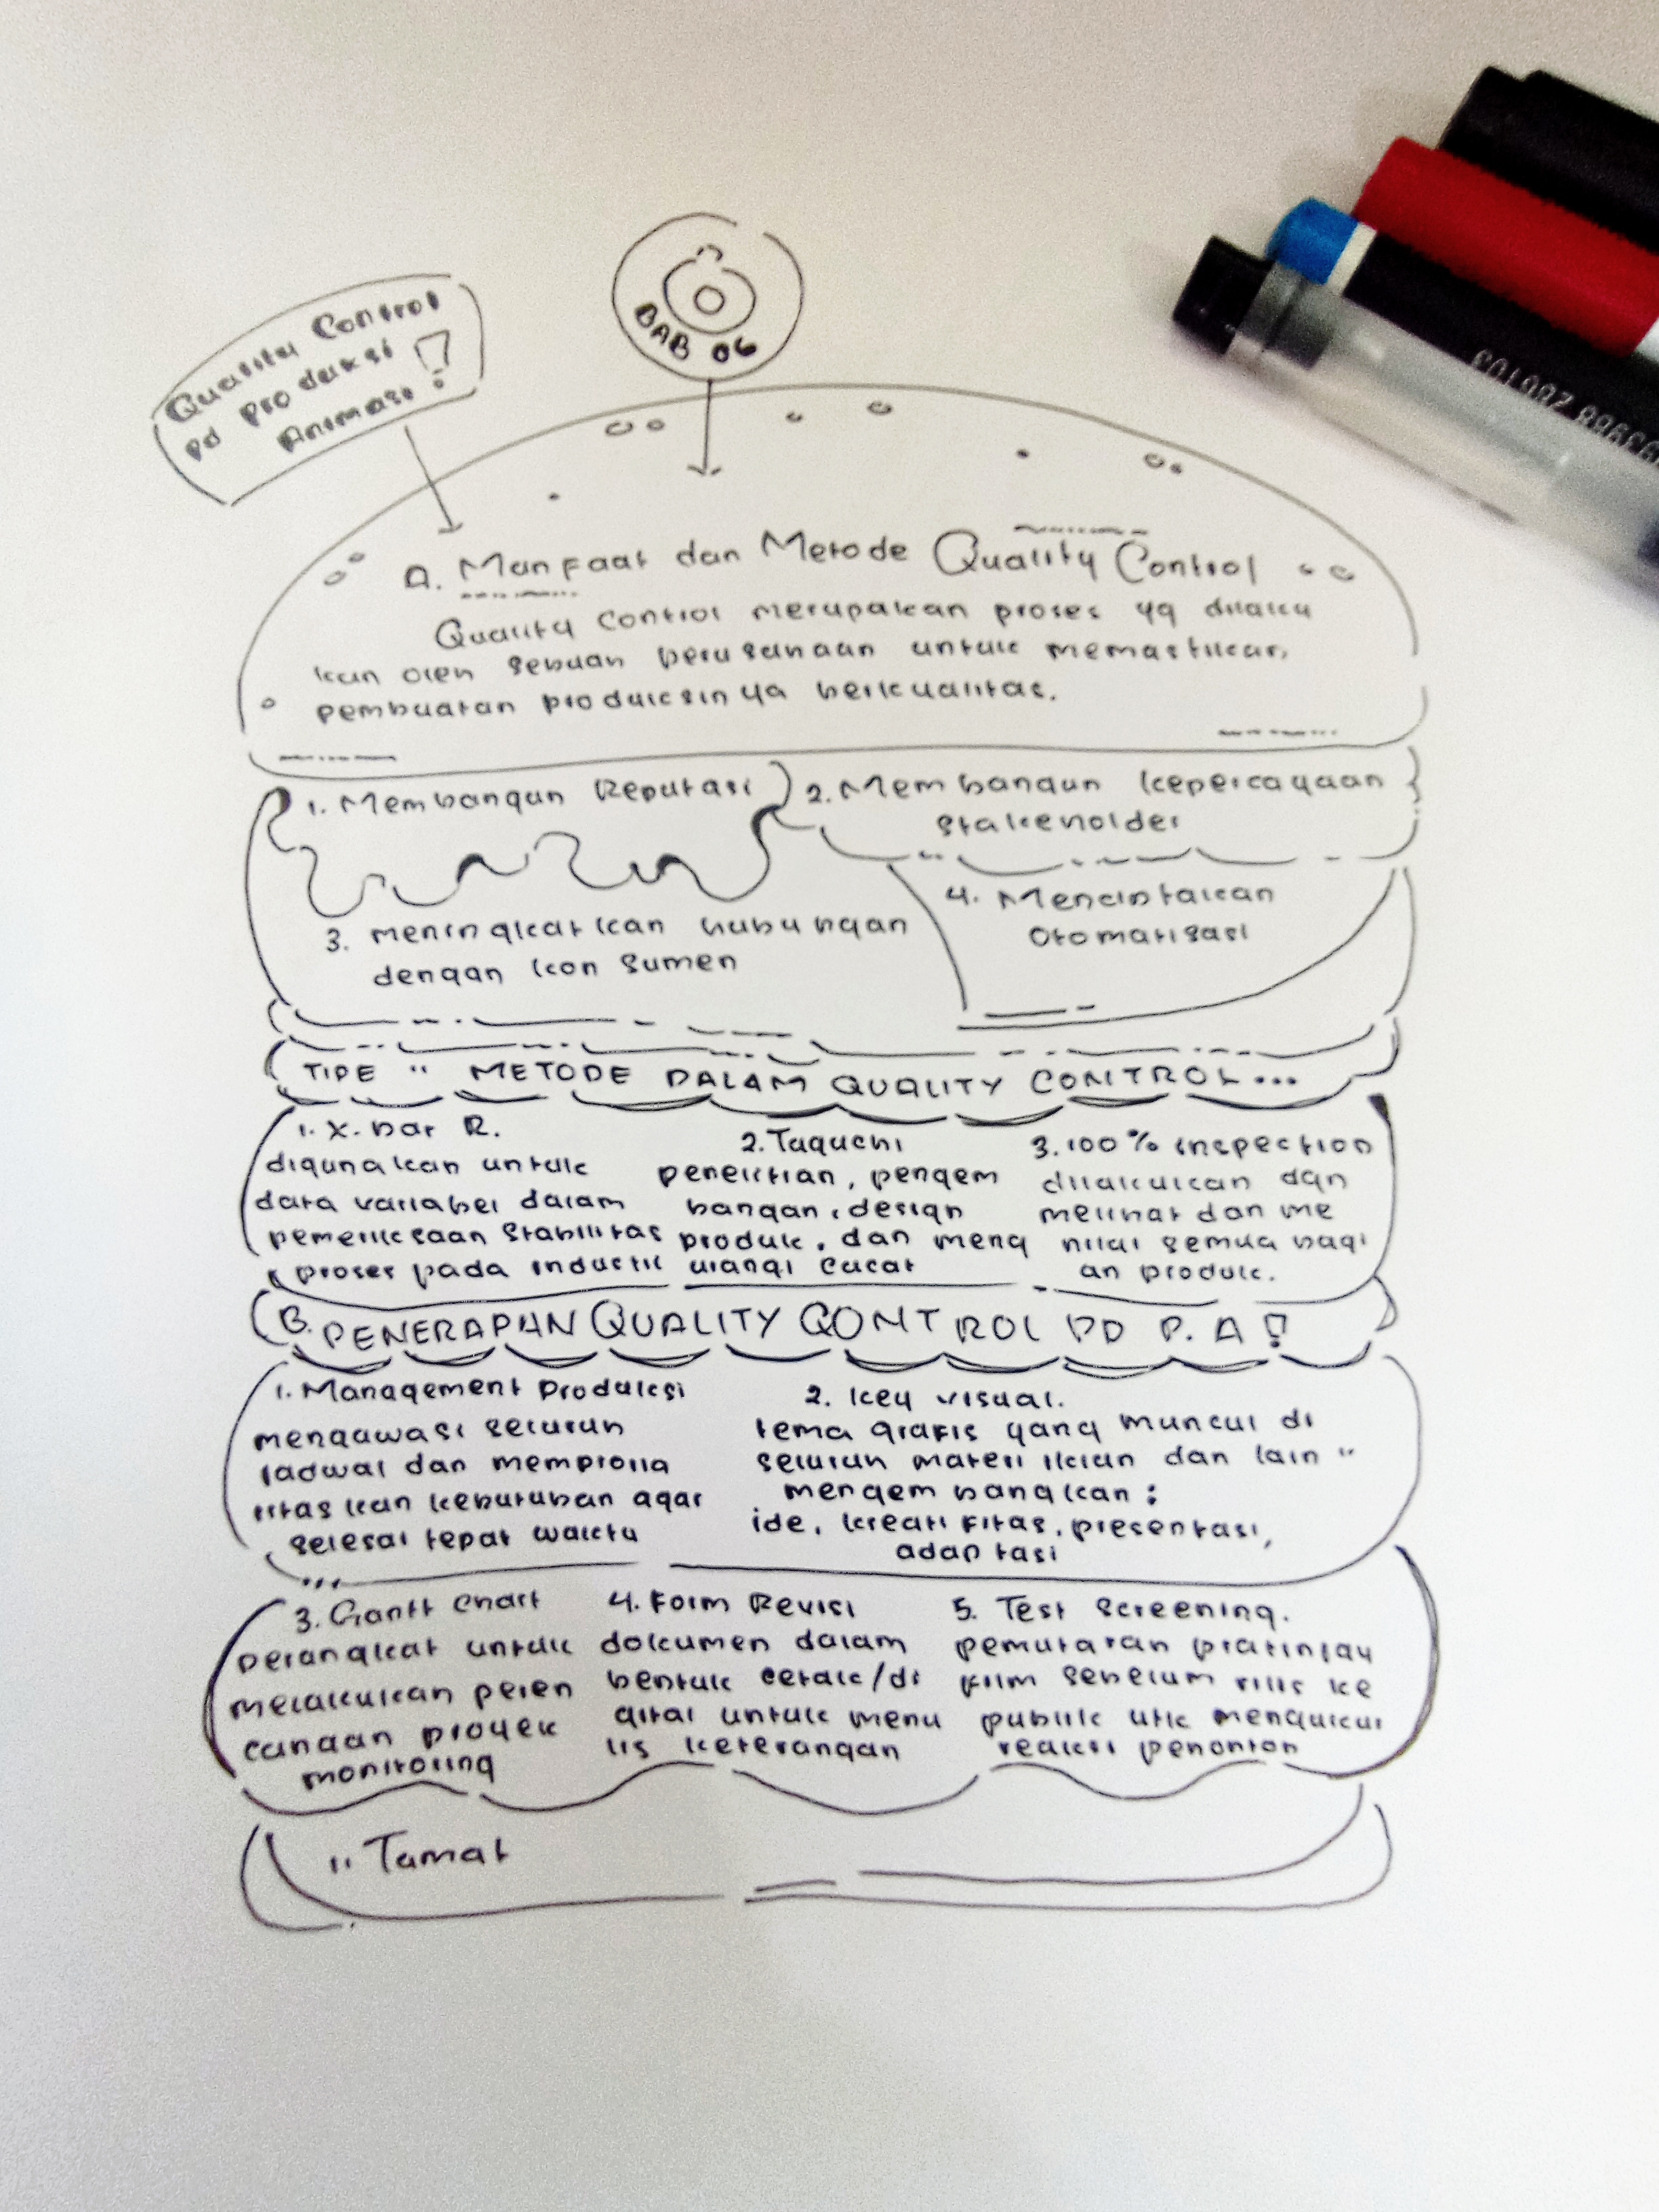 BAB 06
Quality Control
pd produksi
Animasi!
A. Manfaat dan Metode Quality Control
Quality Control merupakan proses yg dilaku
kan oleh sebuah perusahaan untuk memastikan
pembuatan produksinya berkualitas.
1. Membangun Reputasi
2. Membangun kepercayaan
stakeholder
3. meningkatkan hubungan
dengan konsumen
4. Menciptakan
Otomatisasi
TIPE " METODE DALAM QUALITY CONTROL...
1. X-bar R.
digunakan untuk
data variabel dalam
pemeriksaan stabilitas
proses pada industri
2. Taguchi
penelitian, pengem
bangan, design
produk, dan meng
urangi cacat
3. 100% inspection
dilakukan dgn
melihat dan me
nilai semua bagi
an produk.
B. PENERAPAN QUALITY CONTROL PD P. A!
1. Management Produksi
mengawasi seluruh
jadwal dan mempriori
tas kan kebutuhan agar
selesai tepat waktu
...
2. key visual.
tema grafis yang muncul di
seluruh materi iklan dan lain "
mengembangkan:
ide, kreatifitas, presentasi,
adaptasi
3. Gantt chart
perangkat untuk
melakukan peren
canaan proyek
monitoring
4. Form Revisi
dokumen dalam
bentuk cetak/di
gital untuk menu
lis keterangan
5. Test Screening.
pemutaran pratinjau
film sebelum rilis ke
publik utk mengukur
reaksi penonton
" Tamat
2006103